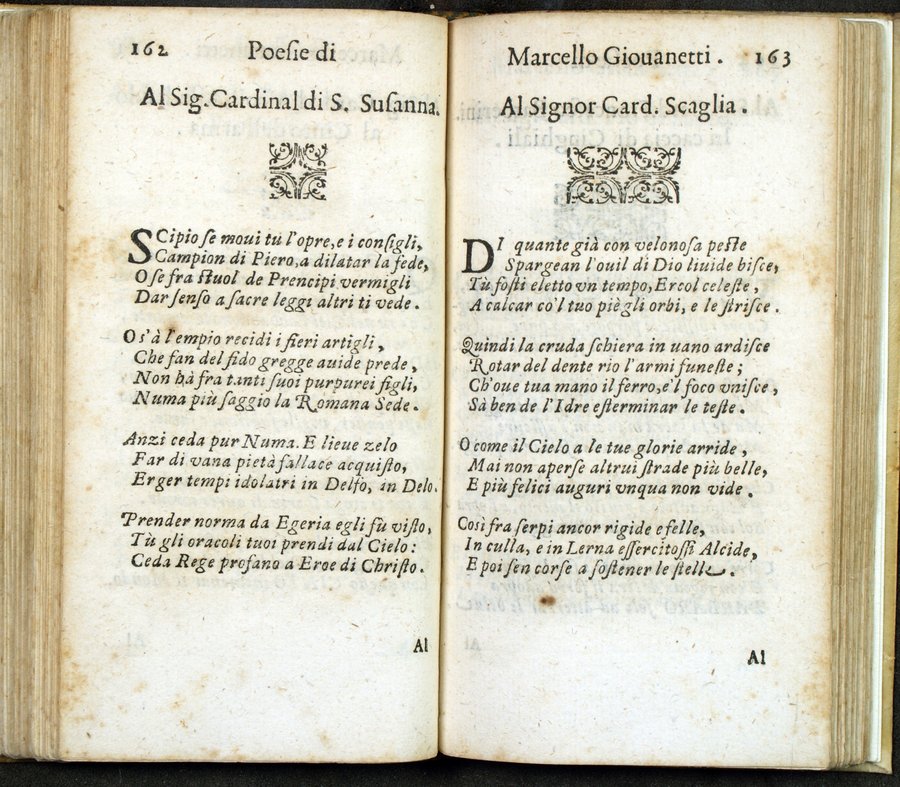 162 Poeſie di
Al Sig. Cardinal di S. Suſanna.
SCipio ſe moui tu l'opre, e i conſigli,
Campion di Piero, a dilatar la fede,
O ſe fra ſtuol de Prencipi vermigli
Dar ſenſo a ſacre leggi altri ti vede.
O s'à l'empio recidi i fieri artigli,
Che fan del fido gregge auide prede,
Non hà fra tanti ſuoi purpurei figli,
Numa più ſaggio la Romana Sede.
Anzi ceda pur Numa. E lieue zelo
Far di vana pietà fallace acquiſto,
Erger tempi idolatri in Delfo, in Delo.
Prender norma da Egeria egli fù viſto,
Tù gli oracoli tuoi prendi dal Cielo:
Ceda Rege profano a Eroe di Chriſto.
Al
Marcello Giouanetti. 163
Al Signor Card. Scaglia.
DI quante già con velonoſa peſte
Spargean l'ouil di Dio liuide biſce,
Tù foſti eletto vn tempo, Ercol celeſte,
A calcar co'l tuo piè gli orbi, e le ſtriſce.
Quindi la cruda ſchiera in uano ardiſce
Rotar del dente rio l'armi funeſte;
Ch'oue tua mano il ferro, e'l foco vniſce,
Sà ben de l'Idre eſterminar le teſte.
O come il Cielo a le tue glorie arride,
Mai non aperſe altrui ſtrade più belle,
E più felici auguri vnqua non vide.
Così fra ſerpi ancor rigide e felle,
In culla, e in Lerna eſſercitoſſi Alcide,
E poi ſen corſe a ſoſtener le ſtelle.
Al